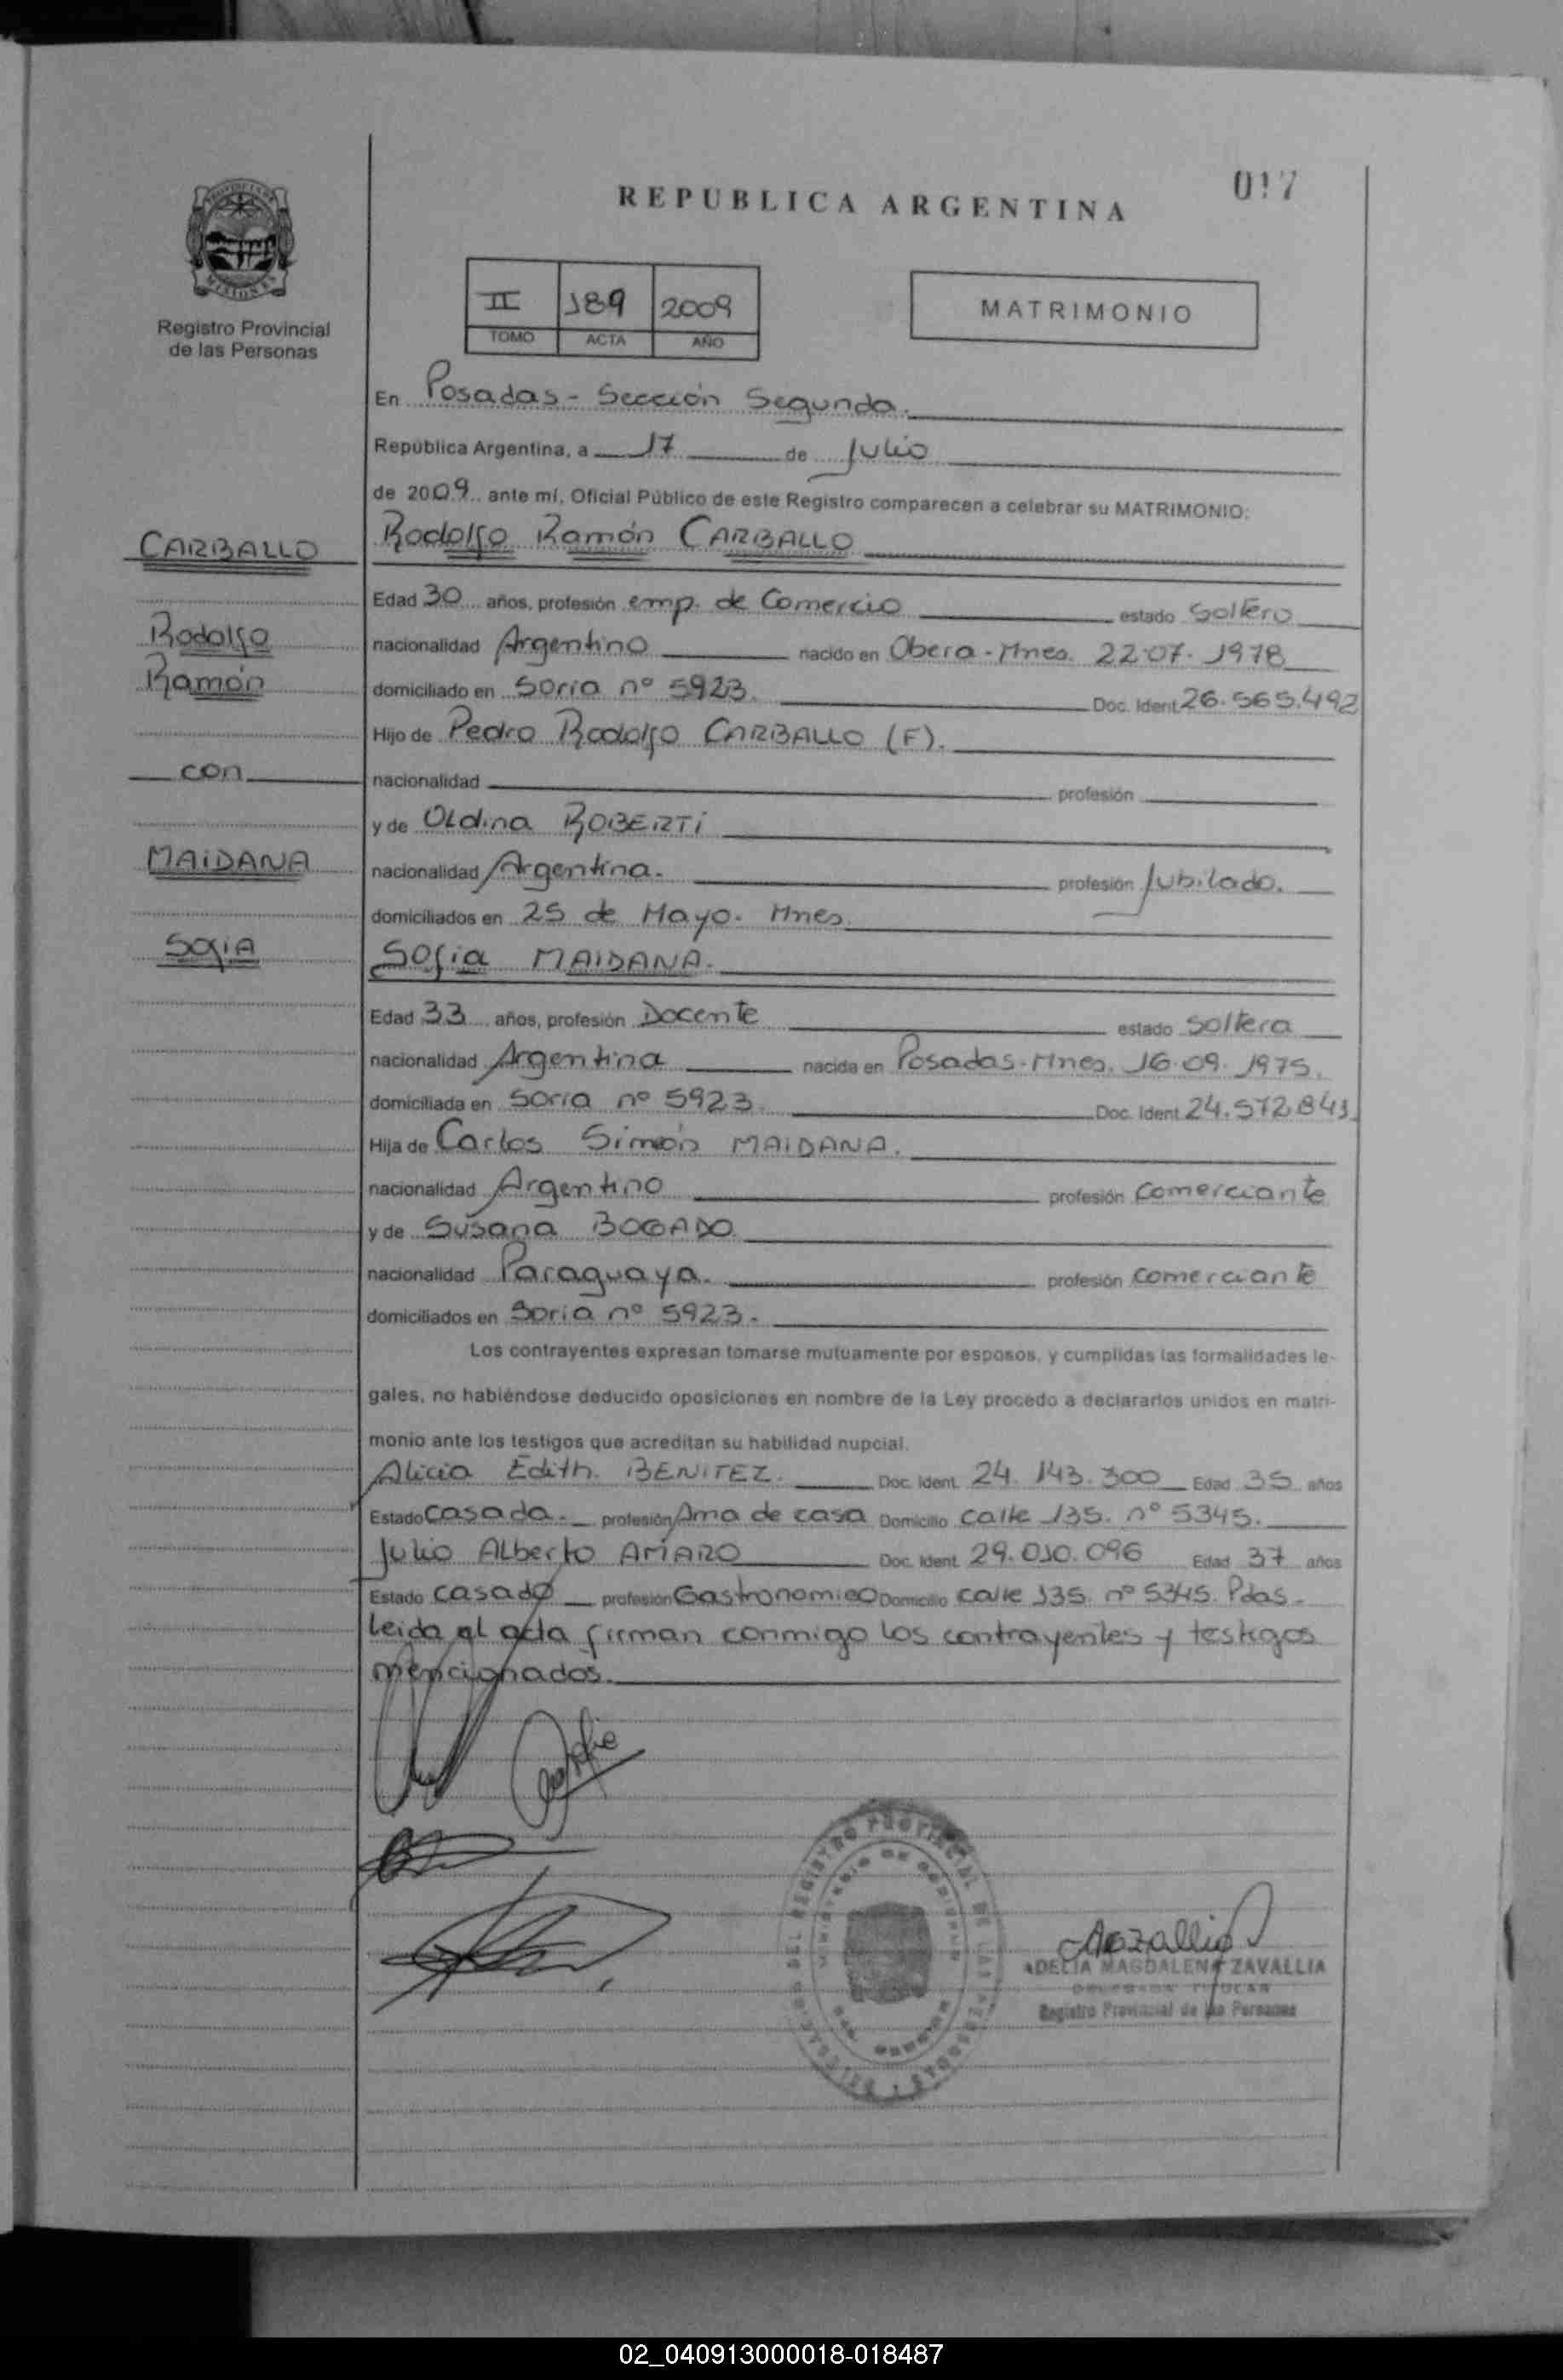 017
REPUBLICA ARGENTINA
PROVINCIA DE
MISIONES
Registro Provincial
de las Personas
II 189 2009
TOMO ACTA AÑO
MATRIMONIO
En Posadas - Sección Segunda.
República Argentina, a 17 de Julio
de 2009 ante mí, Oficial Público de este Registro comparecen a celebrar su MATRIMONIO:
CARBALLO
Rodolfo Ramón CARBALLO
Edad 30 años, profesión emp. de Comercio estado Soltero
Rodolfo
nacionalidad Argentino nacido en Obera - Mnes. 22.07.1978
Ramón
domiciliado en Soria nº 5923. Doc. Ident. 26.565.492
Hijo de Pedro Rodolfo CARBALLO (F).
con
nacionalidad profesión
y de Oldina ROBERTi
MAiDANA
nacionalidad Argentina. profesión Jubilado.
domiciliados en 25 de Mayo. Mnes.
SOfiA
Sofia MAIDANA.
Edad 33 años, profesión Docente estado Soltera
nacionalidad Argentina nacida en Posadas - Mnes. 16.09.1975.
domiciliada en Soria nº 5923. Doc. Ident. 24.572.843.
Hija de Carlos Simeón MAIDANA.
nacionalidad Argentino profesión Comerciante
y de Susana BOGADO
nacionalidad Paraguaya. profesión comerciante
domiciliados en Soria nº 5923.
Los contrayentes expresan tomarse mutuamente por esposos, y cumplidas las formalidades le-
gales, no habiéndose deducido oposiciones en nombre de la Ley procedo a declararlos unidos en matri-
monio ante los testigos que acreditan su habilidad nupcial.
Alicia Edith. BENITEZ. Doc. Ident. 24.143.300 Edad 35 años
Estado Casada. profesión Ama de casa Domicilio calle 135. nº 5345.
Julio Alberto AMARO Doc. Ident. 29.010.096 Edad 37 años
Estado casado profesión Gastronomico Domicilio calle 135. nº 5345. Pdas.
Leida el acta firman conmigo los contrayentes y testigos
mencionados.
DELIA MAGDALENA ZAVALLIA
DELEGADA TITULAR
Registro Provincial de las Personas
02_040913000018-018487